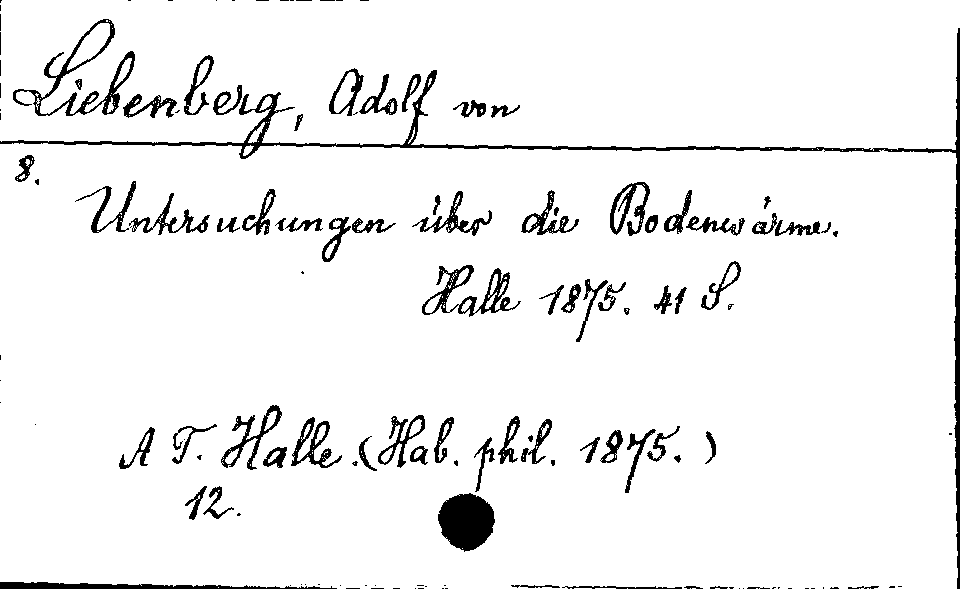 Liebenberg, Adolf von
8.
Untersuchungen über die Bodenwärme.
Halle 1875. 41 S.
A T. Halle.(Hab. phil. 1875.)
12.